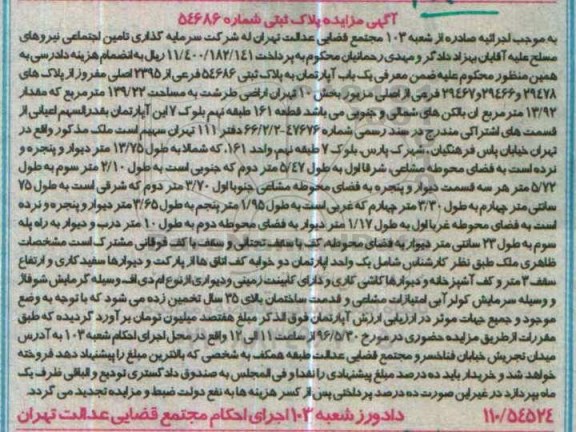 آگهی مزایده پلاک ثبتی شماره ۵۴۶۸۶
به موجب اجرائیه صادره از شعبه ۱۰۳ مجتمع قضایی عدالت تهران له شرکت سرمایه گذاری تامین اجتماعی نیروهای
مسلح علیه آقایان بهزاد دادگر و مهدی رحمانیان محکوم به پرداخت ۱۱/۴۰۰/۱۸۲/۱۴۱ ریال به انضمام هزینه دادرسی به
همین منظور محکوم علیه ضمن معرفی یک باب آپارتمان به پلاک ثبتی ۵۴۶۸۶ فرعی از ۲۳۹۵ اصلی مفروز از پلاک های
۲۹۴۷۸ و۲۹۴۶۶ و۲۹۴۶۷ فرعی از اصلی مزبور بخش ۱۰ تهران اراضی طرشت به مساحت ۱۳۹/۲۲ متر مربع که مقدار
۱۳/۹۲ متر مربع آن بالکن های شمالی و جنوبی می باشد. قطعه ۱۶۱ طبقه نهم بلوک ۷ این آپارتمان بقدرالسهم اعیانی از
قسمت های اشتراکی مندرج در سند رسمی شماره ۴۷۶۷۶-۶۶/۲/۲ دفتر ۱۱۱ تهران سهیم است ملک مذکور واقع در
تهران خیابان یاس فرهنگیان، شهرک پارس، بلوک ۷ طبقه نهم، واحد ۱۶۱، که شمالا به طول ۱۳/۷۵ متر دیوار و پنجره و
نرده است به فضای محوطه مشاعی، شرقا اول به طول ۵/۴۷ متر دوم که جنوبی است به طول ۲/۱۰ متر سوم به طول
۵/۷۲ متر هر سه قسمت دیوار و پنجره به فضای محوطه مشاعی جنوبا اول ۳/۷۰ متر دوم که شرقی است به طول ۷۵
سانتی متر چهارم به طول ۳/۳۰ متر چهارم که غربی است به طول ۱/۹۵ متر پنجم به طول ۳/۶۵ متر دیوار و پنجره و نرده
است به فضای محوطه غربا اول به طول ۱/۱۷ متر دیوار به فضای محوطه دوم به طول ۱۰ متر درب و دیوار به راه پله
سوم به طول ۲۳ سانتی متر دیوار به فضای محوطه، کف با سقف تحتانی و سقف با کف فوقانی مشترک است مشخصات
ظاهری ملک طبق نظر کارشناس شامل یک واحد آپارتمان دو خوابه کف اتاق ها از پارکت و دیوارها سفید کاری و ارتفاع
سقف ۳ متر و کف آشپزخانه و دیوارها کاشی کاری و دارای کابینت زمینی و دیواری از نوع ام دی اف وسیله گرمایش شوفاژ
و وسیله سرمایش کولر آبی امتیازات مشاعی و قدمت ساختمان بالای ۳۵ سال تخمین زده می شود که با توجه به وضع
موجود و جمیع جهات موثر در ارزیابی ارزش آپارتمان فوق الذکر مبلغ هفتصد میلیون تومان برآورد گردیده که طبق
مقررات از طریق مزایده حضوری در مورخ ۹۶/۵/۳۰ از ساعت ۱۱ الی ۱۲ واقع در محل اجرای احکام شعبه ۱۰۳ به آدرس
میدان تجریش خیابان فناخسرو مجتمع قضایی عدالت طبقه همکف به شخصی که بالاترین مبلغ را پیشنهاد دهد فروخته
خواهد شد و خریدار باید ده درصد مبلغ پیشنهادی را نقدا و فی المجلس به صندوق دادگستری تودیع و الباقی ظرف یک
ماه بپردازد در غیر این صورت ده درصد پرداختی پس از کسر هزینه ها به نفع دولت ضبط و مزایده تجدید می گردد.
۱۱۰/۵۴۵۲۴ دادورز شعبه ۱۰۳ اجرای احکام مجتمع قضایی عدالت تهران